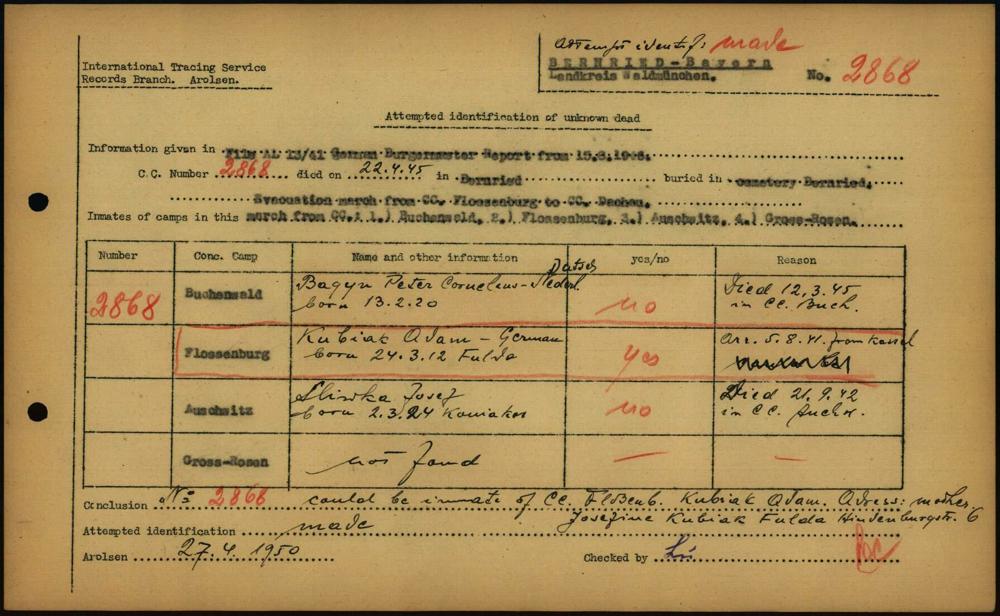 Attempt identif: made
International Tracing Service
Records Branch. Arolsen.
BERNRIED-Bayern
Landkreis Waldmünchen.
No. 2868
Attempted identification of unknown dead
Information given in File AL 13/41 German Burgermaster Report from 15.8.1946.
C.C. Number 2868 died on 22.4.45 in Bernried buried in cemetery Bernried,
Evacuation march from CC. Flossenburg to CC. Dachau.
Inmates of camps in this march from CC.: 1.) Buchenwald, 2.) Flossenburg, 3.) Auschwitz, 4.) Gross-Rosen.
Number Conc. Camp Name and other information yes/no Reason
2868
Buchenwald
Bagyn Peter Cornelius - Nederl.
born 13.2.20
no
Died 12.3.45
in CC. Buch.
Flossenburg
Kubiak Adam - German
born 24.3.12 Fulda
yes
Arr. 5.8.41. from Kassel
Auschwitz
Sliwka Josef
born 2.3.24 Koniakow
no
Died 21.9.42
in CC. Auchw.
Gross-Rosen
not found
—
—
Conclusion No 2868 could be inmate of CC. Floßenb. Kubiak Adam. Adress: mother
Josefine Kubiak Fulda Hindenburgstr. 6
Attempted identification made
Arolsen 27.4.1950
Checked by